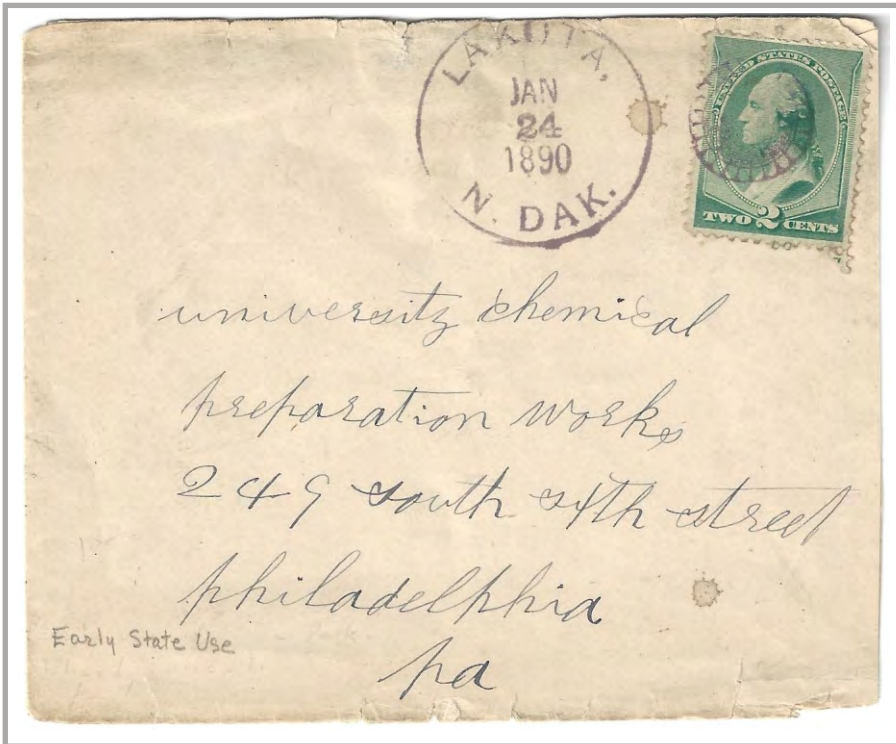 LAKOTA,
JAN
24
1890
N. DAK.
UNITED STATES POSTAGE
TWO 2 CENTS
universitz chemical
preparation works
249 south street
philadelphia
pa
Early State Use